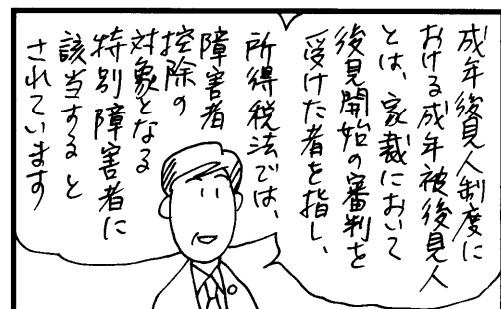 成年後見人制度に
おける成年被後見人
とは、家裁において
後見開始の審判を
受けた者を指し、
所得税法では、
障害者
控除の
対象となる
特別障害者に
該当すると
されています